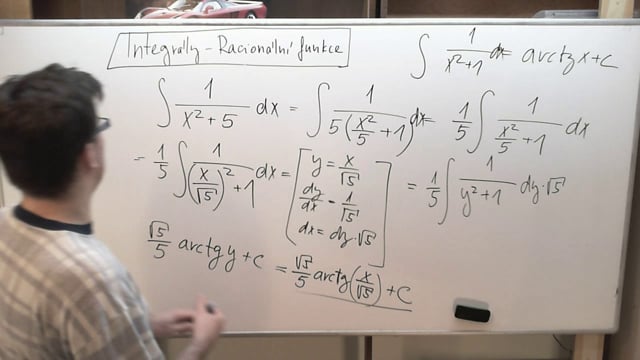 Integrály - Racionální funkce
∫ 1/(x²+1) dx = arctg x + c
∫ 1/(x²+5) dx = ∫ 1/(5(x²/5+1)) dx = 1/5 ∫ 1/(x²/5+1) dx
= 1/5 ∫ 1/((x/√5)²+1) dx = [y = x/√5
dy/dx = 1/√5
dx = dy·√5] = 1/5 ∫ 1/(y²+1) dy·√5
√5/5 arctg y + c = √5/5 arctg(x/√5) + c